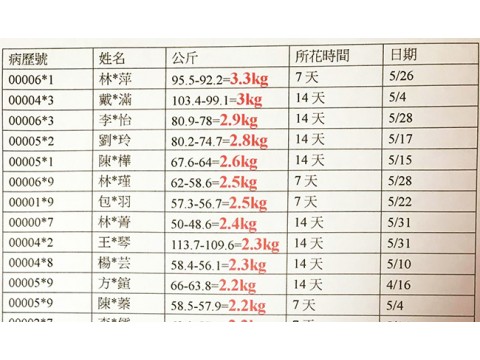 病歷號 姓名 公斤 所花時間 日期
00006*1 林*萍 95.5-92.2=3.3kg 7 天 5/26
00004*3 戴*滿 103.4-99.1=3kg 14 天 5/4
00006*3 李*怡 80.9-78=2.9kg 14 天 5/28
00005*2 劉*玲 80.2-74.7=2.8kg 14 天 5/17
00005*1 陳*樺 67.6-64=2.6kg 14 天 5/15
00006*9 林*瑾 62-58.6=2.5kg 7 天 5/28
00001*9 包*羽 57.3-56.7=2.5kg 7 天 5/22
00000*7 林*菁 50-48.6=2.4kg 14 天 5/31
00004*2 王*琴 113.7-109.6=2.3kg 14 天 5/31
00004*8 楊*芸 58.4-56.1=2.3kg 14 天 5/10
00005*9 方*鎧 66-63.8=2.2kg 14 天 4/16
00005*9 陳*蘂 58.5-57.9=2.2kg 7 天 5/4